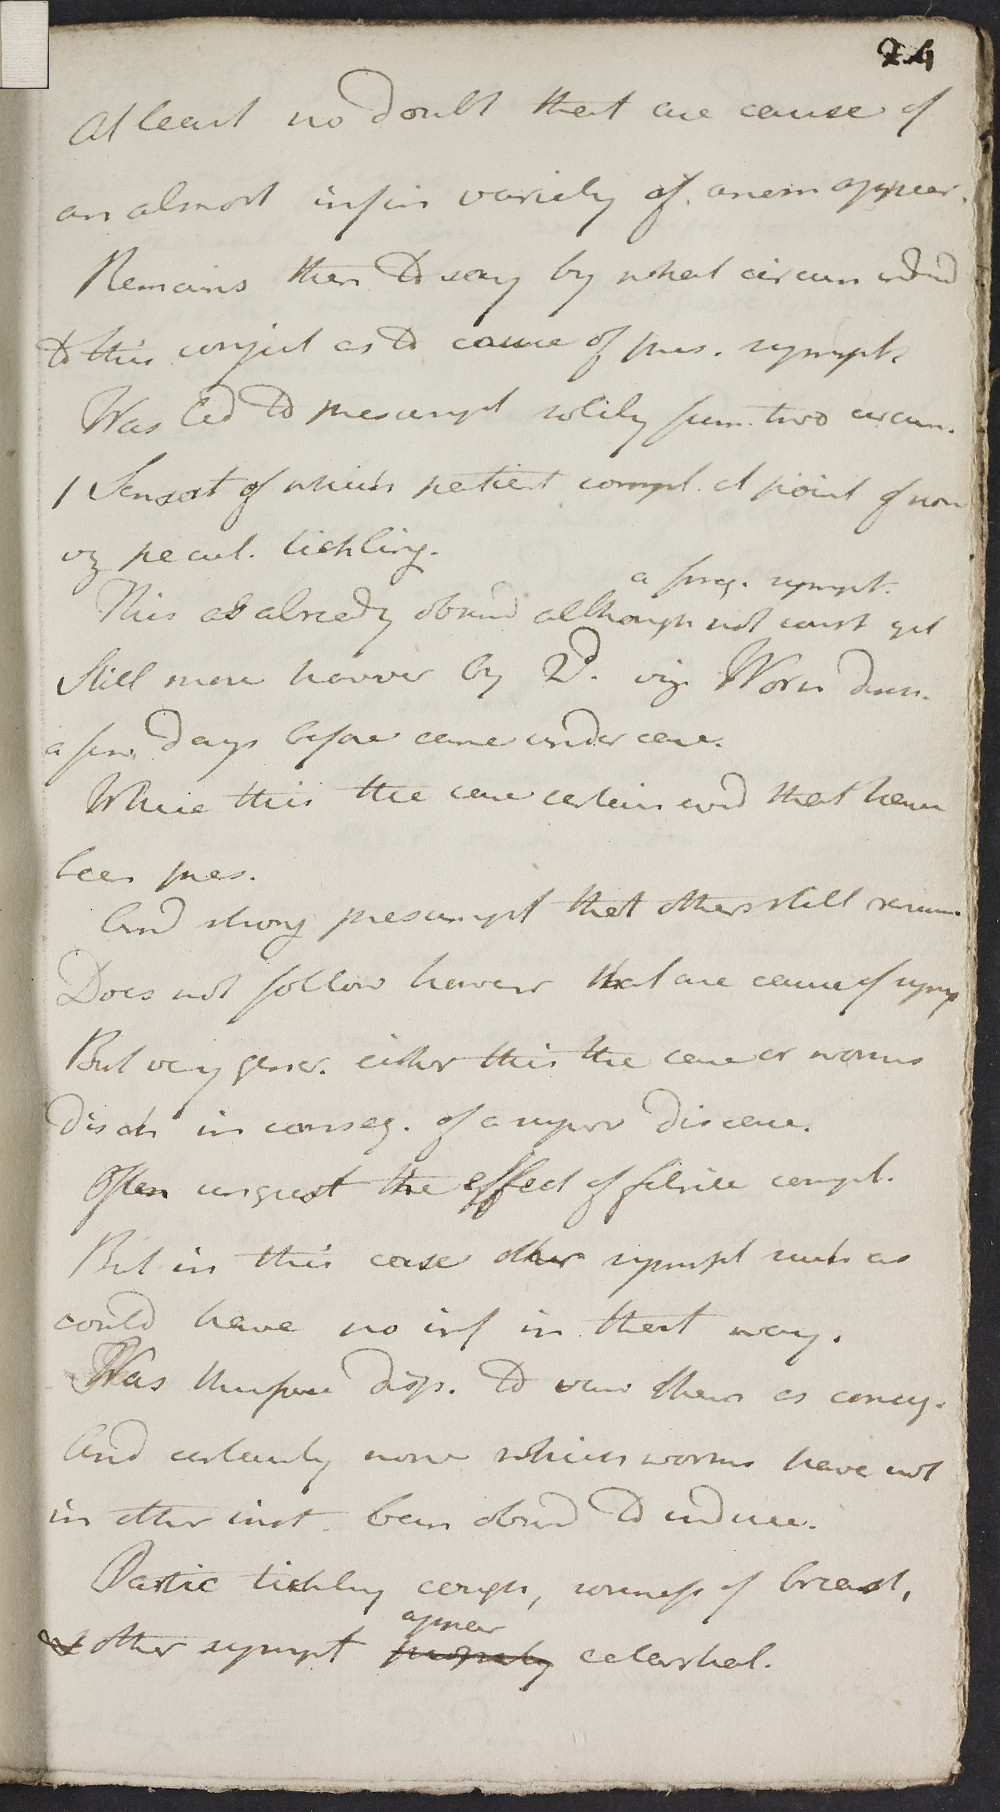 24
At least no doubt that are cause of
an almost infin variety of anom appear.
Remains then to say by what circum
to this conject as to cause of pres. sympt.
Was led to presumpt solely from two circum.
1 Sensat of which patient compl. at point of nose
viz pecul. tickling.
a freq. sympt.
This as already obsned although not const yet
Still more howver by 2d. viz Worm
a few days before came under care.
Where this the case certain evid that have
been pres.
And strong presumpt that others still remain
Does not follow howevr that are cause of symp
But very gener. either this the case or worms
disch in conseq. of a superv disease.
Often unquest the effect of febrile compl.
But in this case other sympt such as
could have no inf in that way.
Was therefore disp. to view them as conseq.
And certainly none which worms have not
in other inst. been obsned to induce.
Partic tickling cough, soreness of breast,
appear
& other sympt catarrhal.